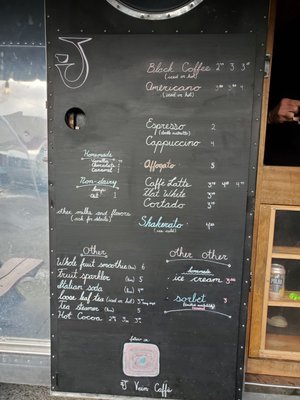 Black Coffee 2⁵⁰ 3 3⁵⁰
(iced or hot)
Americano 3⁰⁰ 4
(iced or hot)
Espresso 2
(double ristretto)
Cappuccino 4
Homemade
Vanilla
Chocolate
Caramel
Affogato 5
Non-dairy
hemp
oat
Caffé Latte
Flat White
Cortado
other milks and flavors
(ask for details)
Shakerato
(so cold)
Other
Whole fruit smoothie (16oz) 6
Fruit sparkler 5
Italian soda 5
Loose leaf tea (iced or hot)
Tea steamer 5
Hot Cocoa
Other Other
homemade
ice cream
sorbet 3
follow us
Vein Caffé